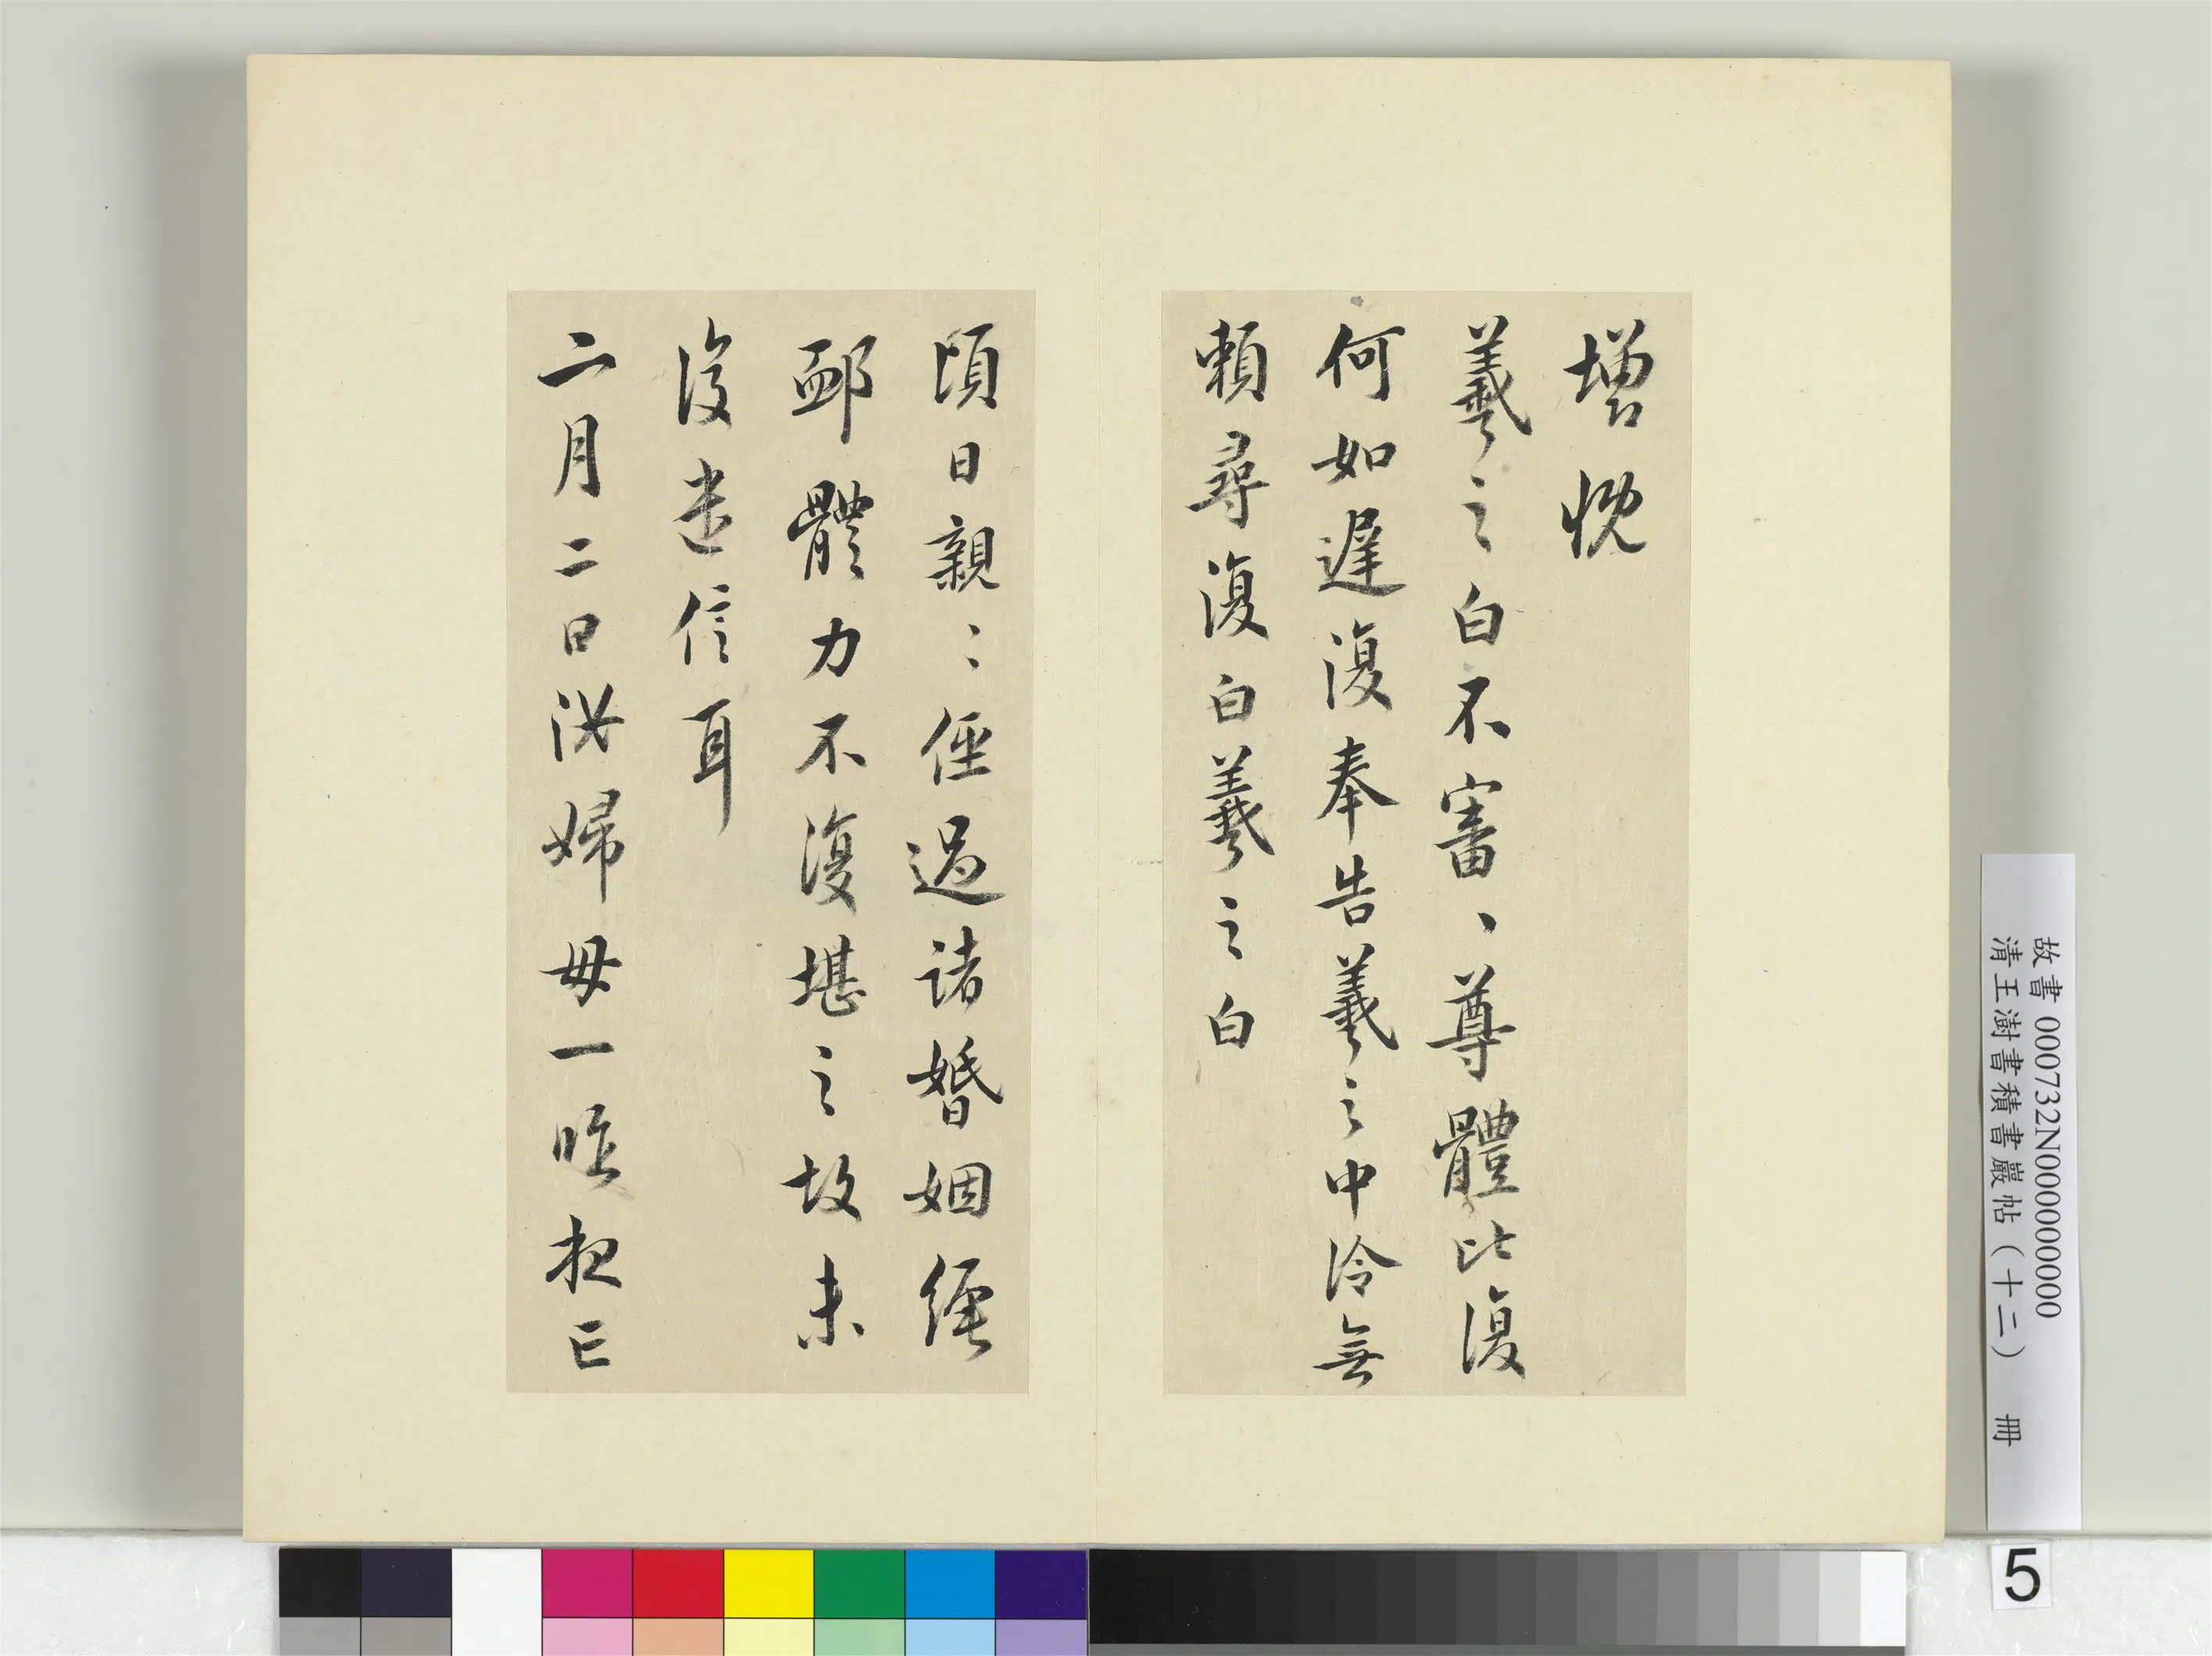 增慨
羲之白不審、尊體比復
何如遲復奉告羲之中冷無
賴尋復白羲之白
頃日親〻俓過諸婚姻
體力不復堪之故未
復遣信耳
二月二日汝婦母一昨夜已
故書 000732N000000000
清王澍書積書巖帖（十二） 冊
5